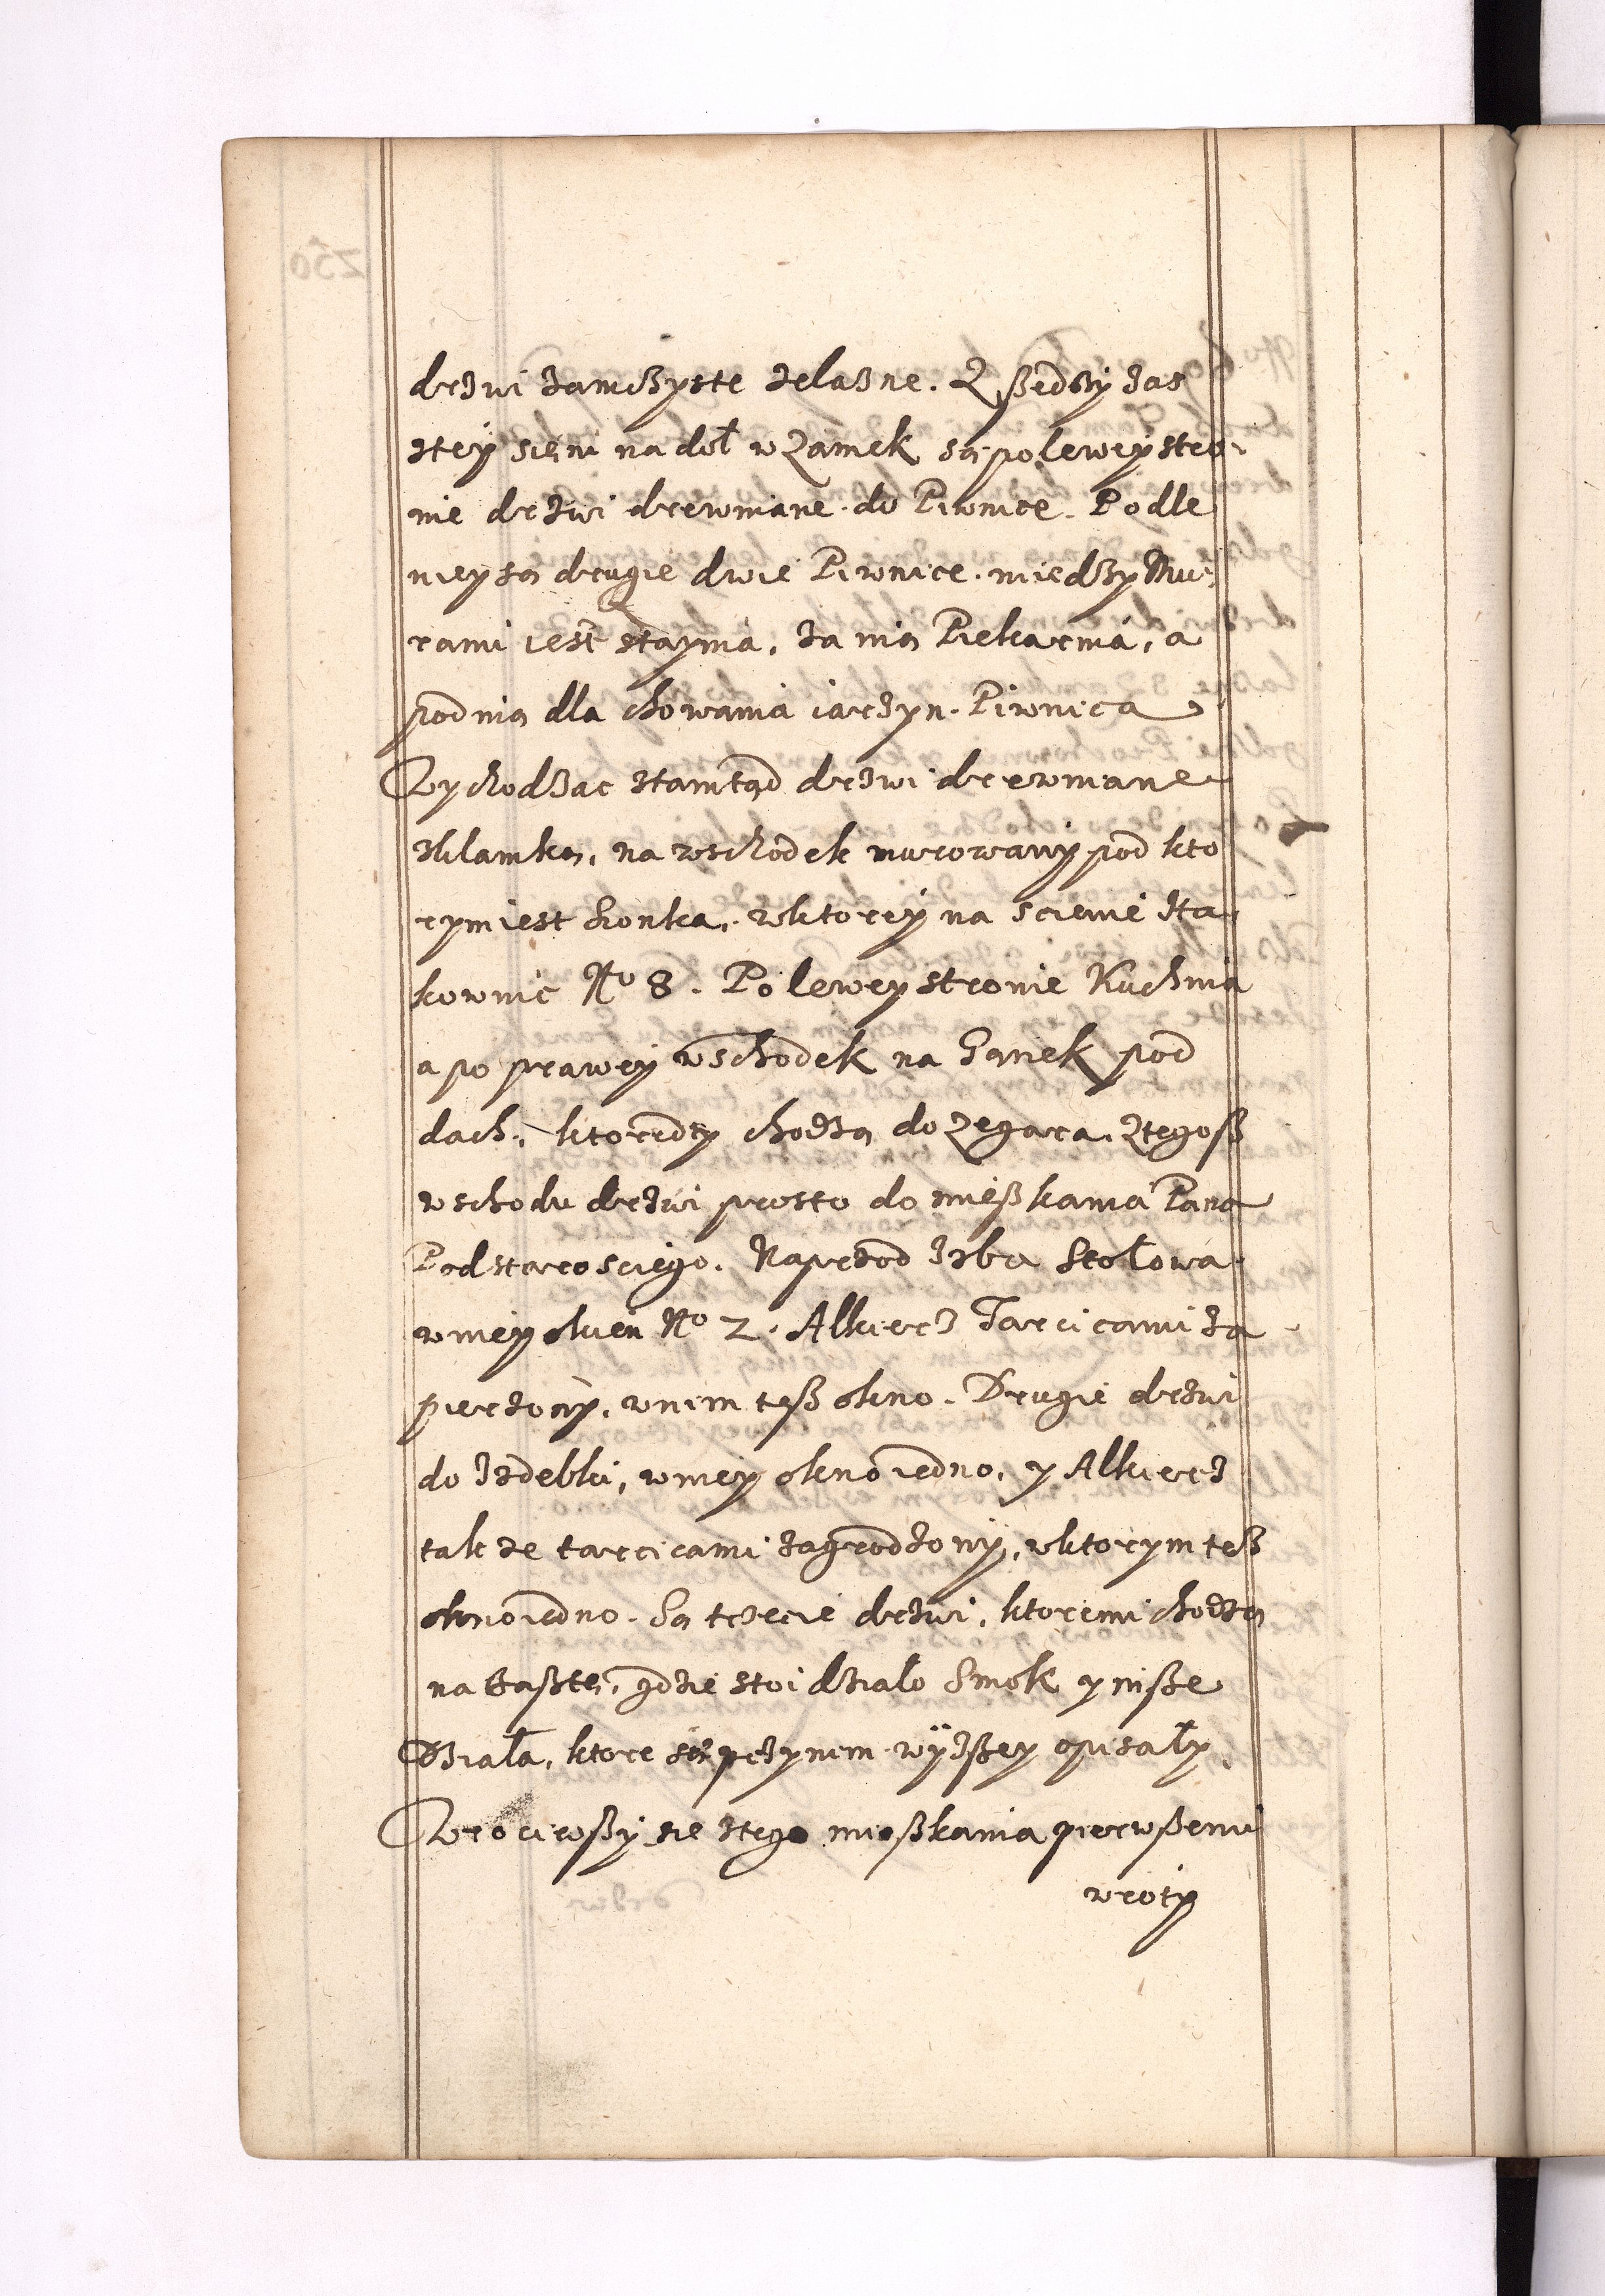 drzwi zamczyste zelazne. Zszedszy zas
ztey sieni na doł w Zamek są po lewey stro-
nie drzwi drewniane do Piwnice. Podle
niey są drugie dwie Piwnice. miedzy Mu-
rami iest stayniá, za nią Piekarniá, a
pod nią dla chowaniá iarzyn. Piwnica
Wychodzac ztamtąd drzwi drewniane
zklamką, na wschodek murowany pod kto
rym iest Konka, wktorey na scienie Ha-
kownic No 8. Po lewey stronie Kuchniá
a po prawey wschodek na Ganek pod
dach, ktorędy chodzą do Zegara. Ztegosz
wschodu drzwi prosto do mięszkaniá Pana
Podstarosciego. Naprzod Izba Stołowa
wniey okien No 2. Alkierz Tarcicami za
pierzony, wnim tesz okno. Drugie drzwi
do Izdebki, wniey okno iedno, y Alkierz
takze tarcicami zagrodzony, wktorym tesz
okno iedno. Są trzecie drzwi, ktoremi chodzą
na Basztę, gdzie stoi działo Smok y nisze
Działa, ktore się przynim wyższey opisały.
Wrociwszy sie ztego mieszkania pierwszemi
wroty
250
drzwi